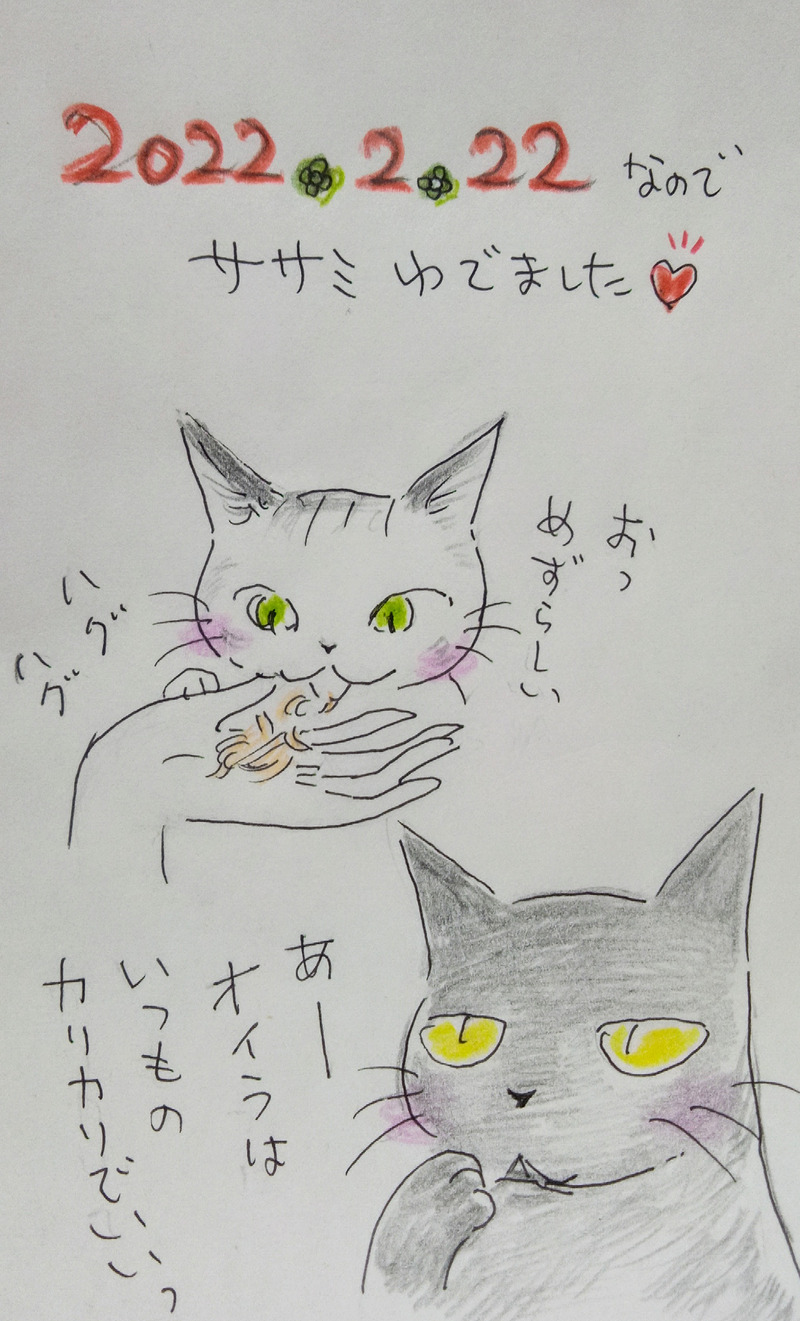 2022.2.22 なので
ササミ ゆでました
おっ
めずらしい
ハグ
ハグ
あー
オイラは
いつもの
カリカリでいいっ